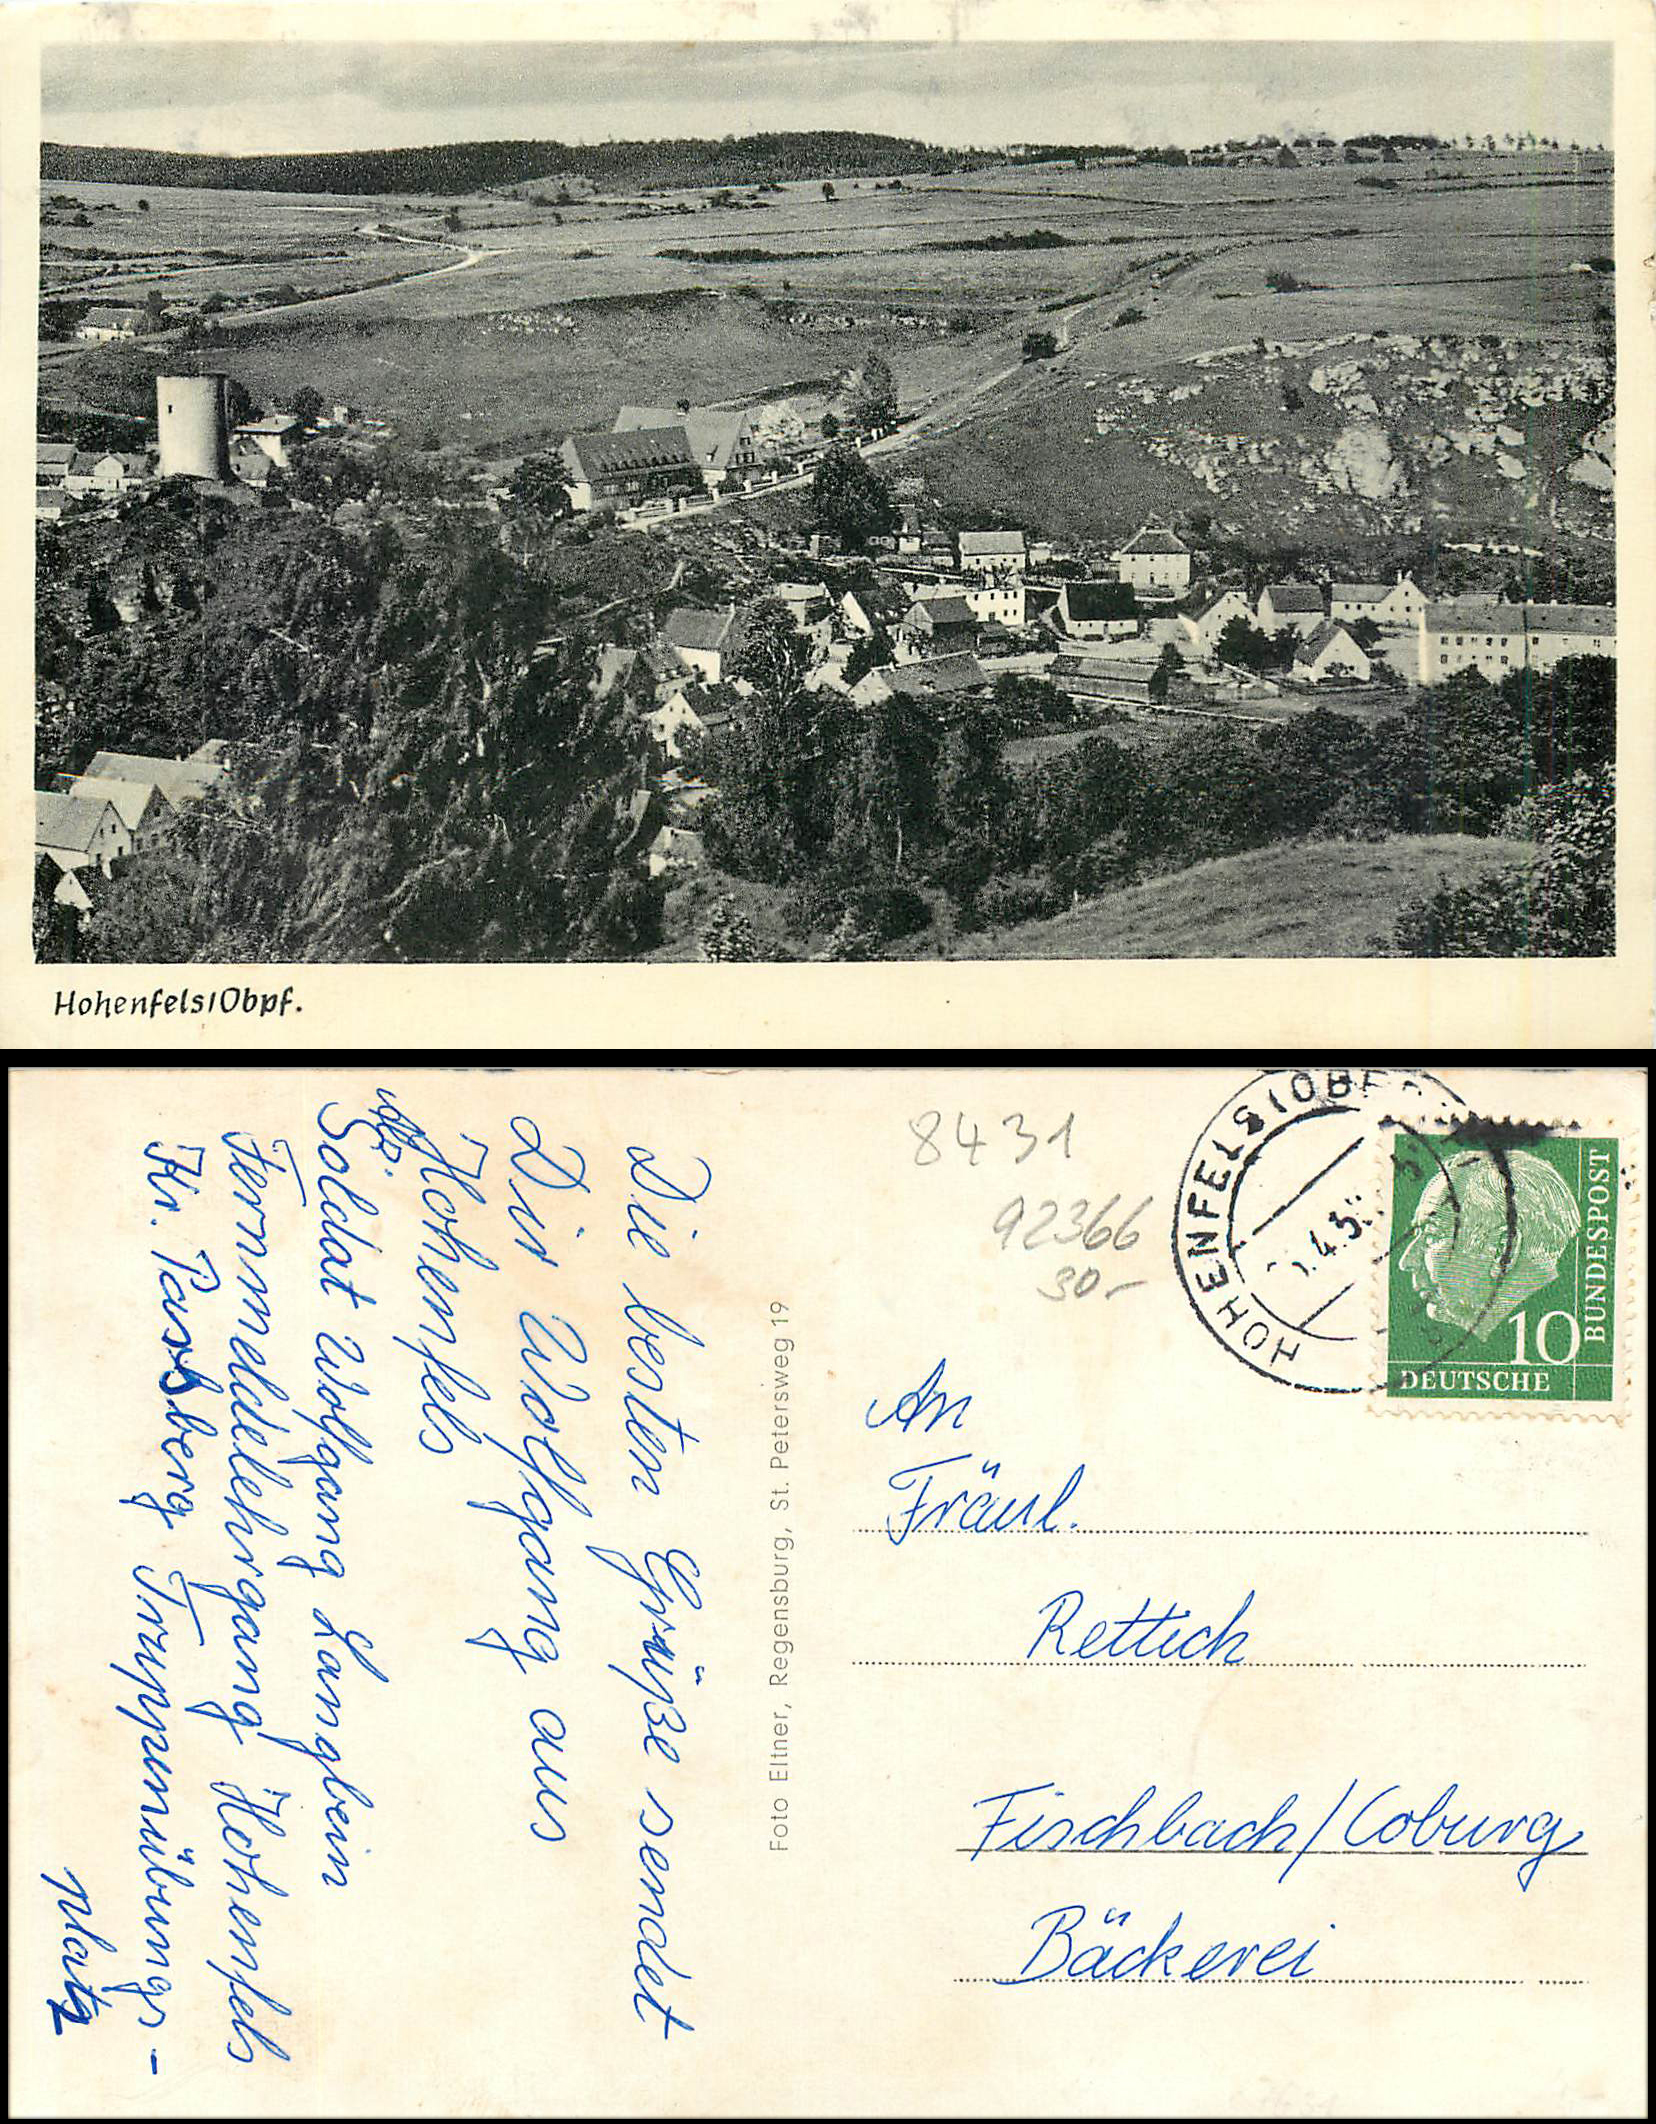 Hohenfels/Obpf.
8431
92366
30.-
HOHENFELS
4.5
10
DEUTSCHE
BUNDESPOST
Die besten Grüße sendet
Dir Wolfgang aus
Hohenfels
Abs.
Soldat Wolfgang Langbein
Fernmeldelehrgang Hohenfels
Kr. Parsberg Truppenübungs-
platz
Foto Eltner, Regensburg, St. Petersweg 19
An
Fräul.
Rettich
Fischbach/Coburg
Bäckerei